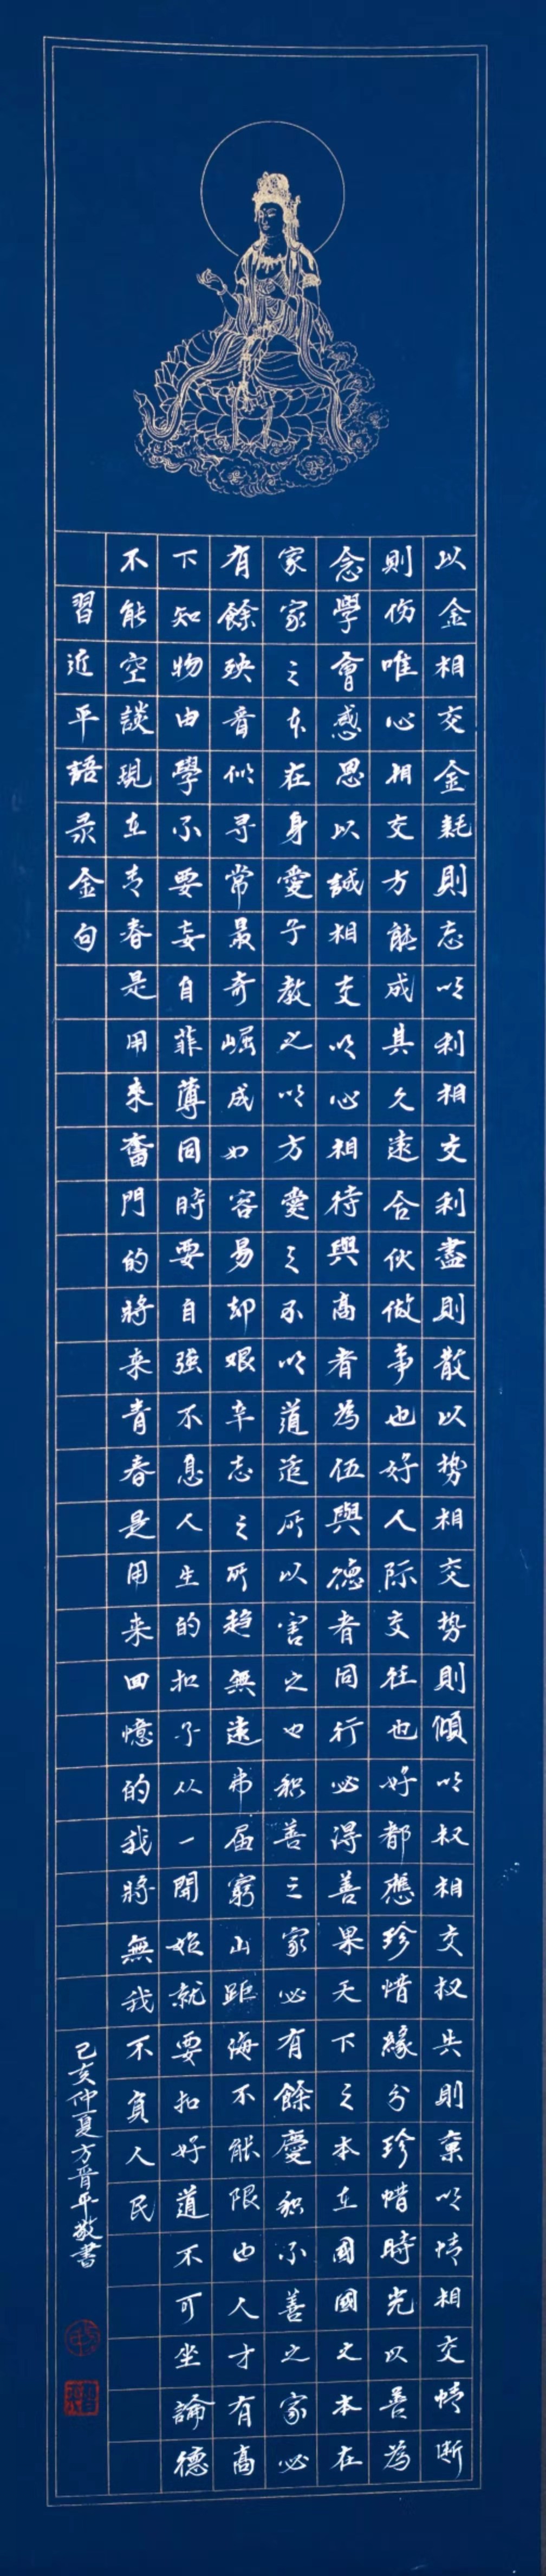 以金相交金耗則忘以利相交利盡則散以势相交势則傾以权相交权失則棄以情相交情断
則伤唯心相交方能成其久遠合伙做事也好人际交往也好都應珍惜緣分珍惜時光以善為
念學會感恩以誠相交以心相待與高者為伍與德者同行必得善果天下之本在國國之本在
家家之本在身愛子教之以方愛之不以道適所以害之也积善之家必有餘慶积不善之家必
有餘殃看似寻常最奇崛成如容易却艰辛志之所趋無遠弗届窮山距海不能限也人才有高
下知物由學不要妄自菲薄同時要自強不息人生的扣子从一開始就要扣好道不可坐論德
不能空談現在青春是用来奮鬥的將来青春是用来回憶的我將無我不負人民
習近平語录金句
己亥仲夏方晋平敬書